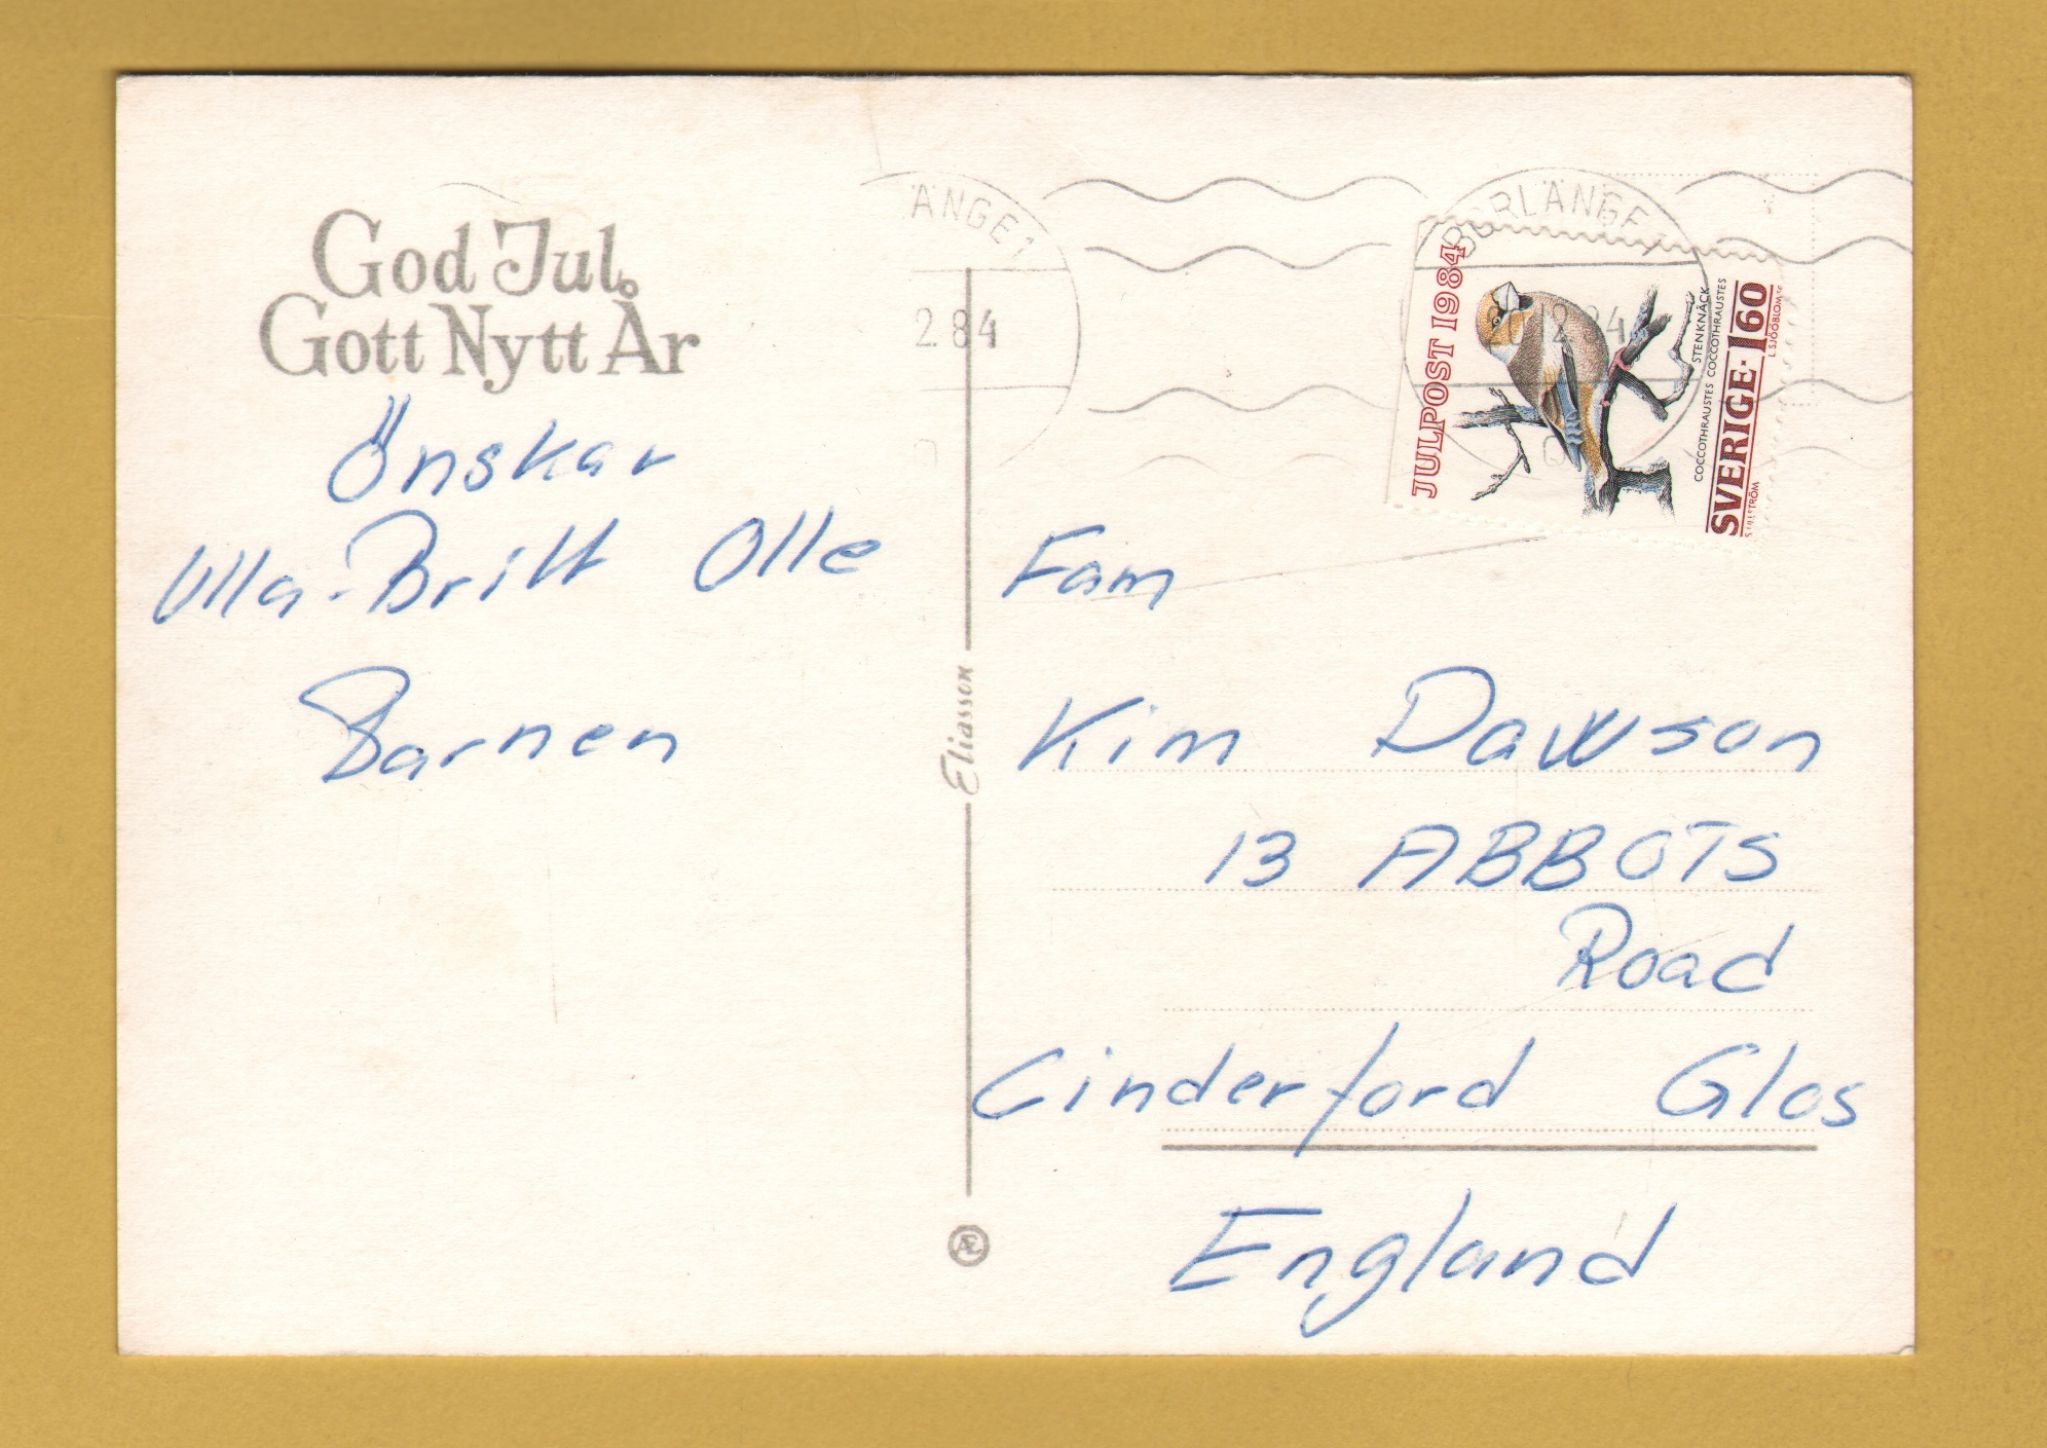 God Jul
Gott Nytt År
Önskar
Ulla-Britt Olle
Barnen
Eliasson
Æ
ÄNGE 1
2.84
BORLÄNGE 1
12.84
JULPOST 1984
STENKNÄCK
COCCOTHRAUSTES COCCOTHRAUSTES
SVERIGE·160
L. SJÖÖBLOM SC
Fam
Kim Dawson
13 ABBOTS
Road
Cinderford Glos
England